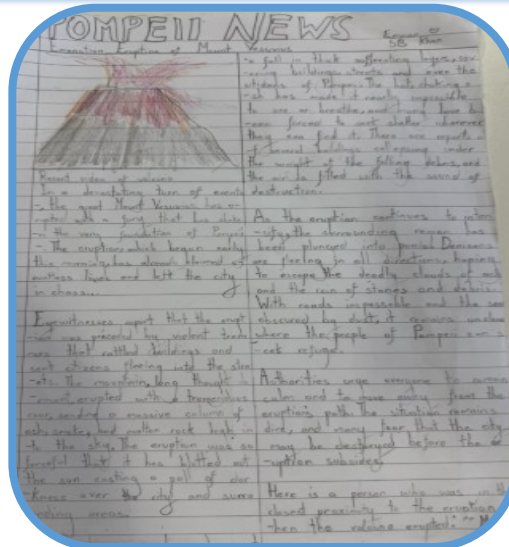 POMPEII NEWS
5B Khan
Eruption of Mount Vesuvius
Recent video of volcano
In a devastating turn of events
, the great Mount Vesuvius has er-
upted with a fury that has
the very foundation of Pompeii
. The eruption, which began early
this morning, has already claimed
countless lives and left the city
in chaos...
Eyewitnesses report that the erupt
-ion was preceded by violent trem
that rattled buildings and
sent citizens fleeing into the stre
-ets. The mountain, long thought
erupted with a tremendous
sending a massive column of
ash, smoke, and molten rock high in
-to the sky. The eruption was so
forceful that it has blotted out
the sun casting a pall of dar
-kness over the city and surro
unding areas.
fall in thick suffocating layers, cov
-ering buildings, streets and even the
citizens of Pompeii. The
ash has made it nearly impossible
to see or breathe, and many have b
-een forced to seek shelter wherever
they can find it. There are reports
of several buildings collapsing under
the weight of the falling debris, and
the air is filled with the sound of
destruction.
As the eruption continues to inten
-sify, the surrounding region has
been plunged into panic.
are fleeing in all directions, hoping
to escape the deadly clouds of ash
and the rain of stones and debris.
With roads impassable and the sea
obscured by dust, it remains unclear
where the people of Pompeii can s
-eek refuge.
Authorities urge everyone to
calm and to move away from the
eruption's path. The situation remains
dire, and many fear that the city
may be destroyed before the e
-ruption subsides.
Here is a person who was in th
closed proximity to the eruption
-hen the volcano erupted: